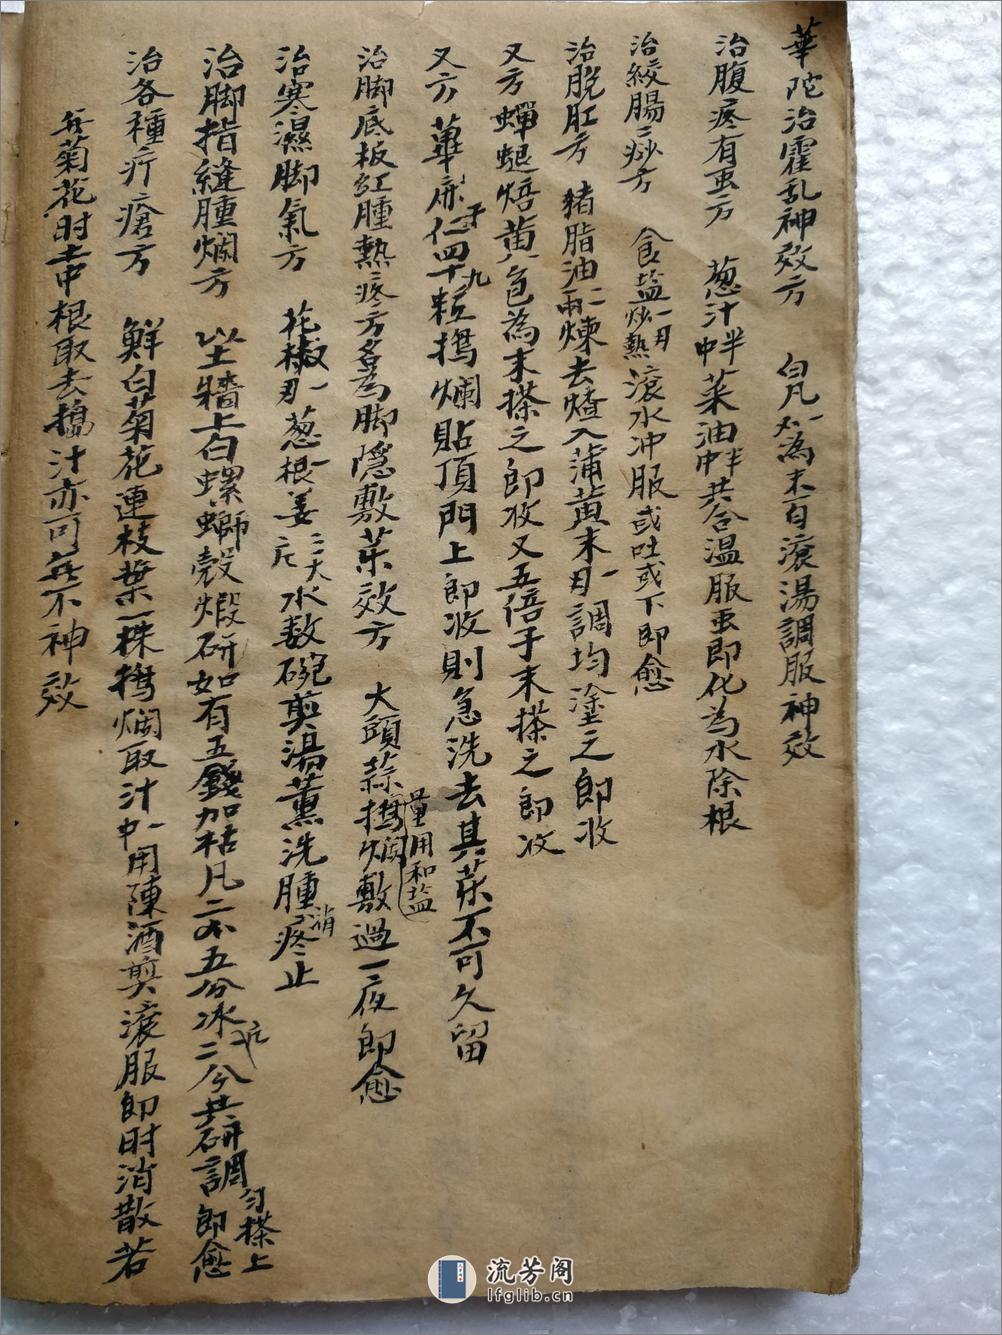 華陀治霍乱神效方　白凡為末百滚湯調服神效
治腹疼有虫方　葱汁半中菜油半中共合温服虫即化為水除根
治絞腸痧方　食盐一刄炒熱滚水冲服或吐或下即愈
治脱肛方　猪脂油二兩煉去楂入蒲黄末一刄調均塗之即收
又方蟬蜕焙黄色為末搽之即收又五倍子末搽之即收
又方萆麻子仁四十九粒搗爛貼頂門上即收則急洗去其药不可久留
治脚底板紅腫熱疼方名為脚隱敷药效方　大頭蒜搗爛量用和盐敷過一夜即愈
治寒濕脚氣方　花椒一刄葱根一姜二大片水数碗煎湯薰洗腫消疼止
治脚指縫腫爛方　以土牆上白螺螄殼煅研如有五錢加枯凡二不五分冰片二分共研調匀搽上即愈
治各種疔瘡方　鮮白菊花連枝葉一株搗爛取汁一中用陳酒煎滚服即时消散若
無菊花时土中根取去搗汁亦可無不神效
流芳阁
lfglib.cn